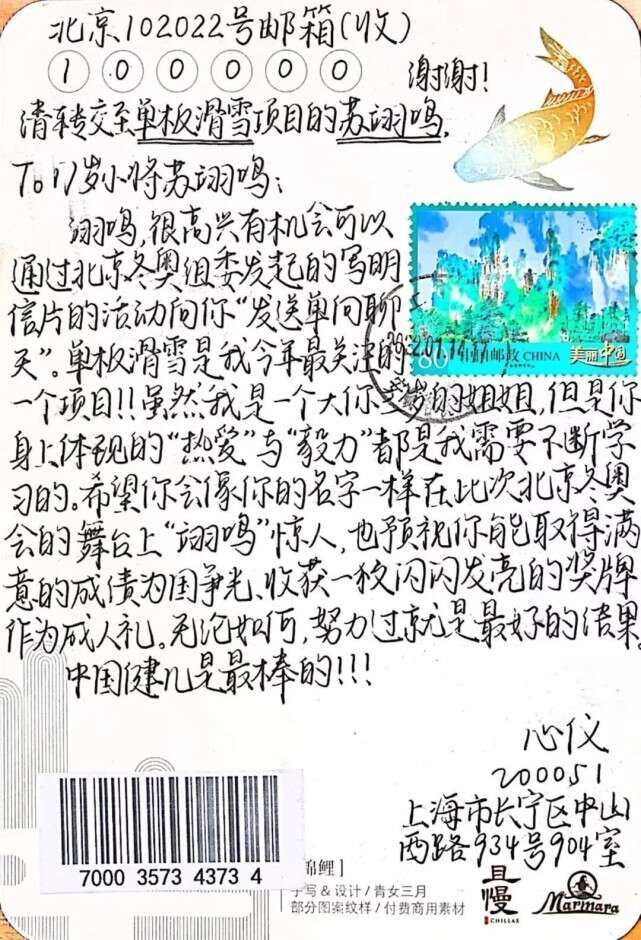 北京102022号邮箱(收)
100000 谢谢!
请转交至单板滑雪项目的苏翊鸣,
To 17岁小将苏翊鸣:
翊鸣,很高兴有机会可以
通过北京冬奥组委发起的写明
信片的活动向你“发送单向聊
天”。单板滑雪是我今年最关注的
一个项目!!虽然我是一个大你 岁的姐姐,但是你
身上体现的“热爱”与“毅力”都是我需要不断学
习的。希望你会像你的名字一样在此次北京冬奥
会的舞台上“翊鸣”惊人,也预祝你能取得满
意的成绩为国争光、收获一枚闪闪发亮的奖牌
作为成人礼。无论如何,努力过就是最好的结果。
中国健儿是最棒的!!!
80 中国邮政 CHINA 美丽中国
心仪
200051
上海市长宁区中山
西路934号904室
7000 3573 4373 4
锦鲤]
手写&设计/青女三月
部分图案纹样/付费商用素材
且慢
CHILLAX
Marmara